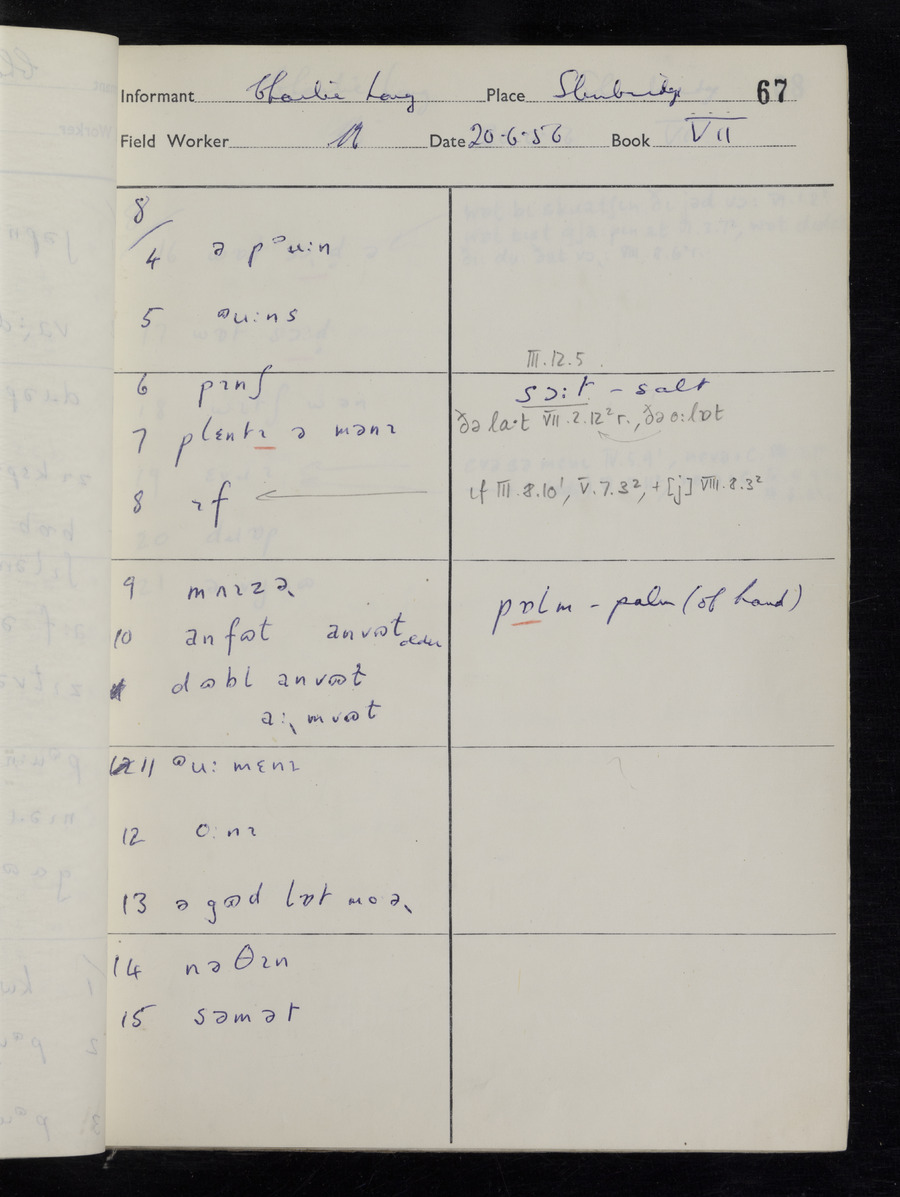 Informant Charlie Long Place Slimbridge 67
Field Worker Date 20-6-56 Book VII
8/
4 ə pᶱu:n
5 ᶱu:ns
6 pɪnʃ
7 plɛntɪ ə mənɪ
8 ɪf
9 mʌɪzə˞
10 anfɒt anvɒt older
dɒbl anvɒt
a:˞mvɒt
11 ᶱu: mɛnɪ
12 o:nɪ
13 ə gɒd lɒt moə˞
14 nəθɪn
15 səmət
III.12.5.
sɔ:t - salt
ðə la·t VII.2.12² r., ðə o:lɒt
if III.8.10¹, V.7.3², + [j] VIII.8.3²
pɒlm - palm (of hand)